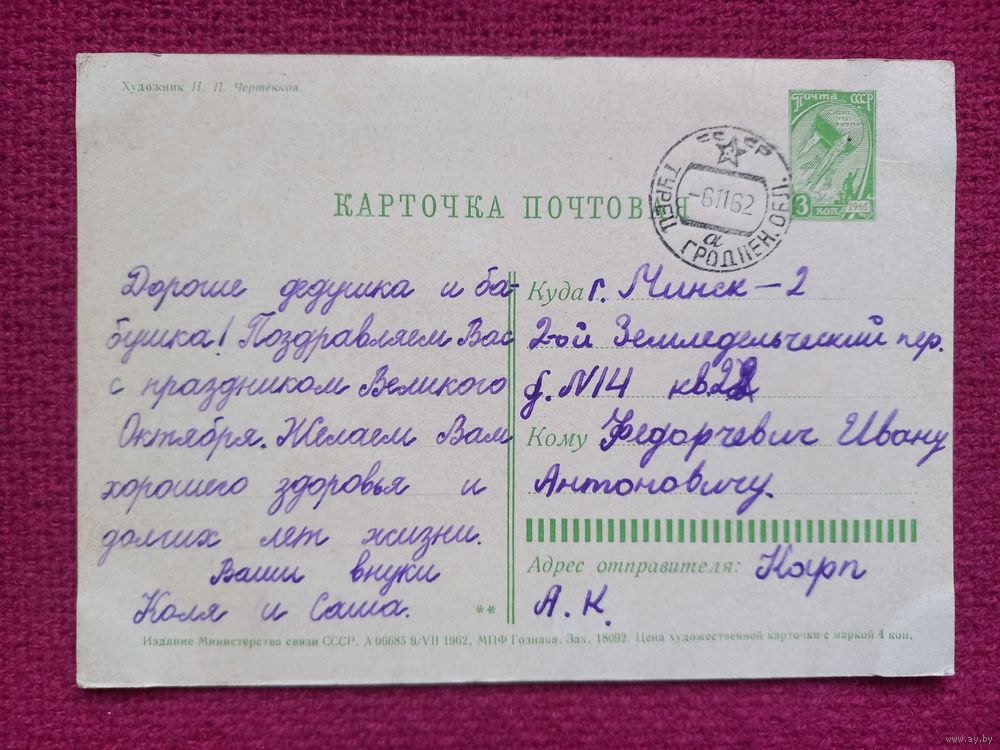 Художник Н. П. Чертёнков.
Почта СССР
3 коп 1961
СССР
ТУРЕЦ ГРОДНЕН. ОБЛ.
-61162
а
КАРТОЧКА ПОЧТОВАЯ
Дорогие дедушка и ба-
бушка! Поздравляем Вас
с праздником Великого
Октября. Желаем Вам
хорошего здоровья и
долгих лет жизни.
Ваши внуки
Коля и Саша.
**
Куда г. Минск-2
2-ой Земледельческий пер.
д. N14 кв.
Кому Федорчевич Ивану
Антоновичу.
Адрес отправителя: Карп
А. К.
Издание Министерства связи СССР. А 06685 9/VII 1962. МПФ Гознака. Зак. 18092. Цена художественной карточки с маркой 4 коп.
www.ay.by